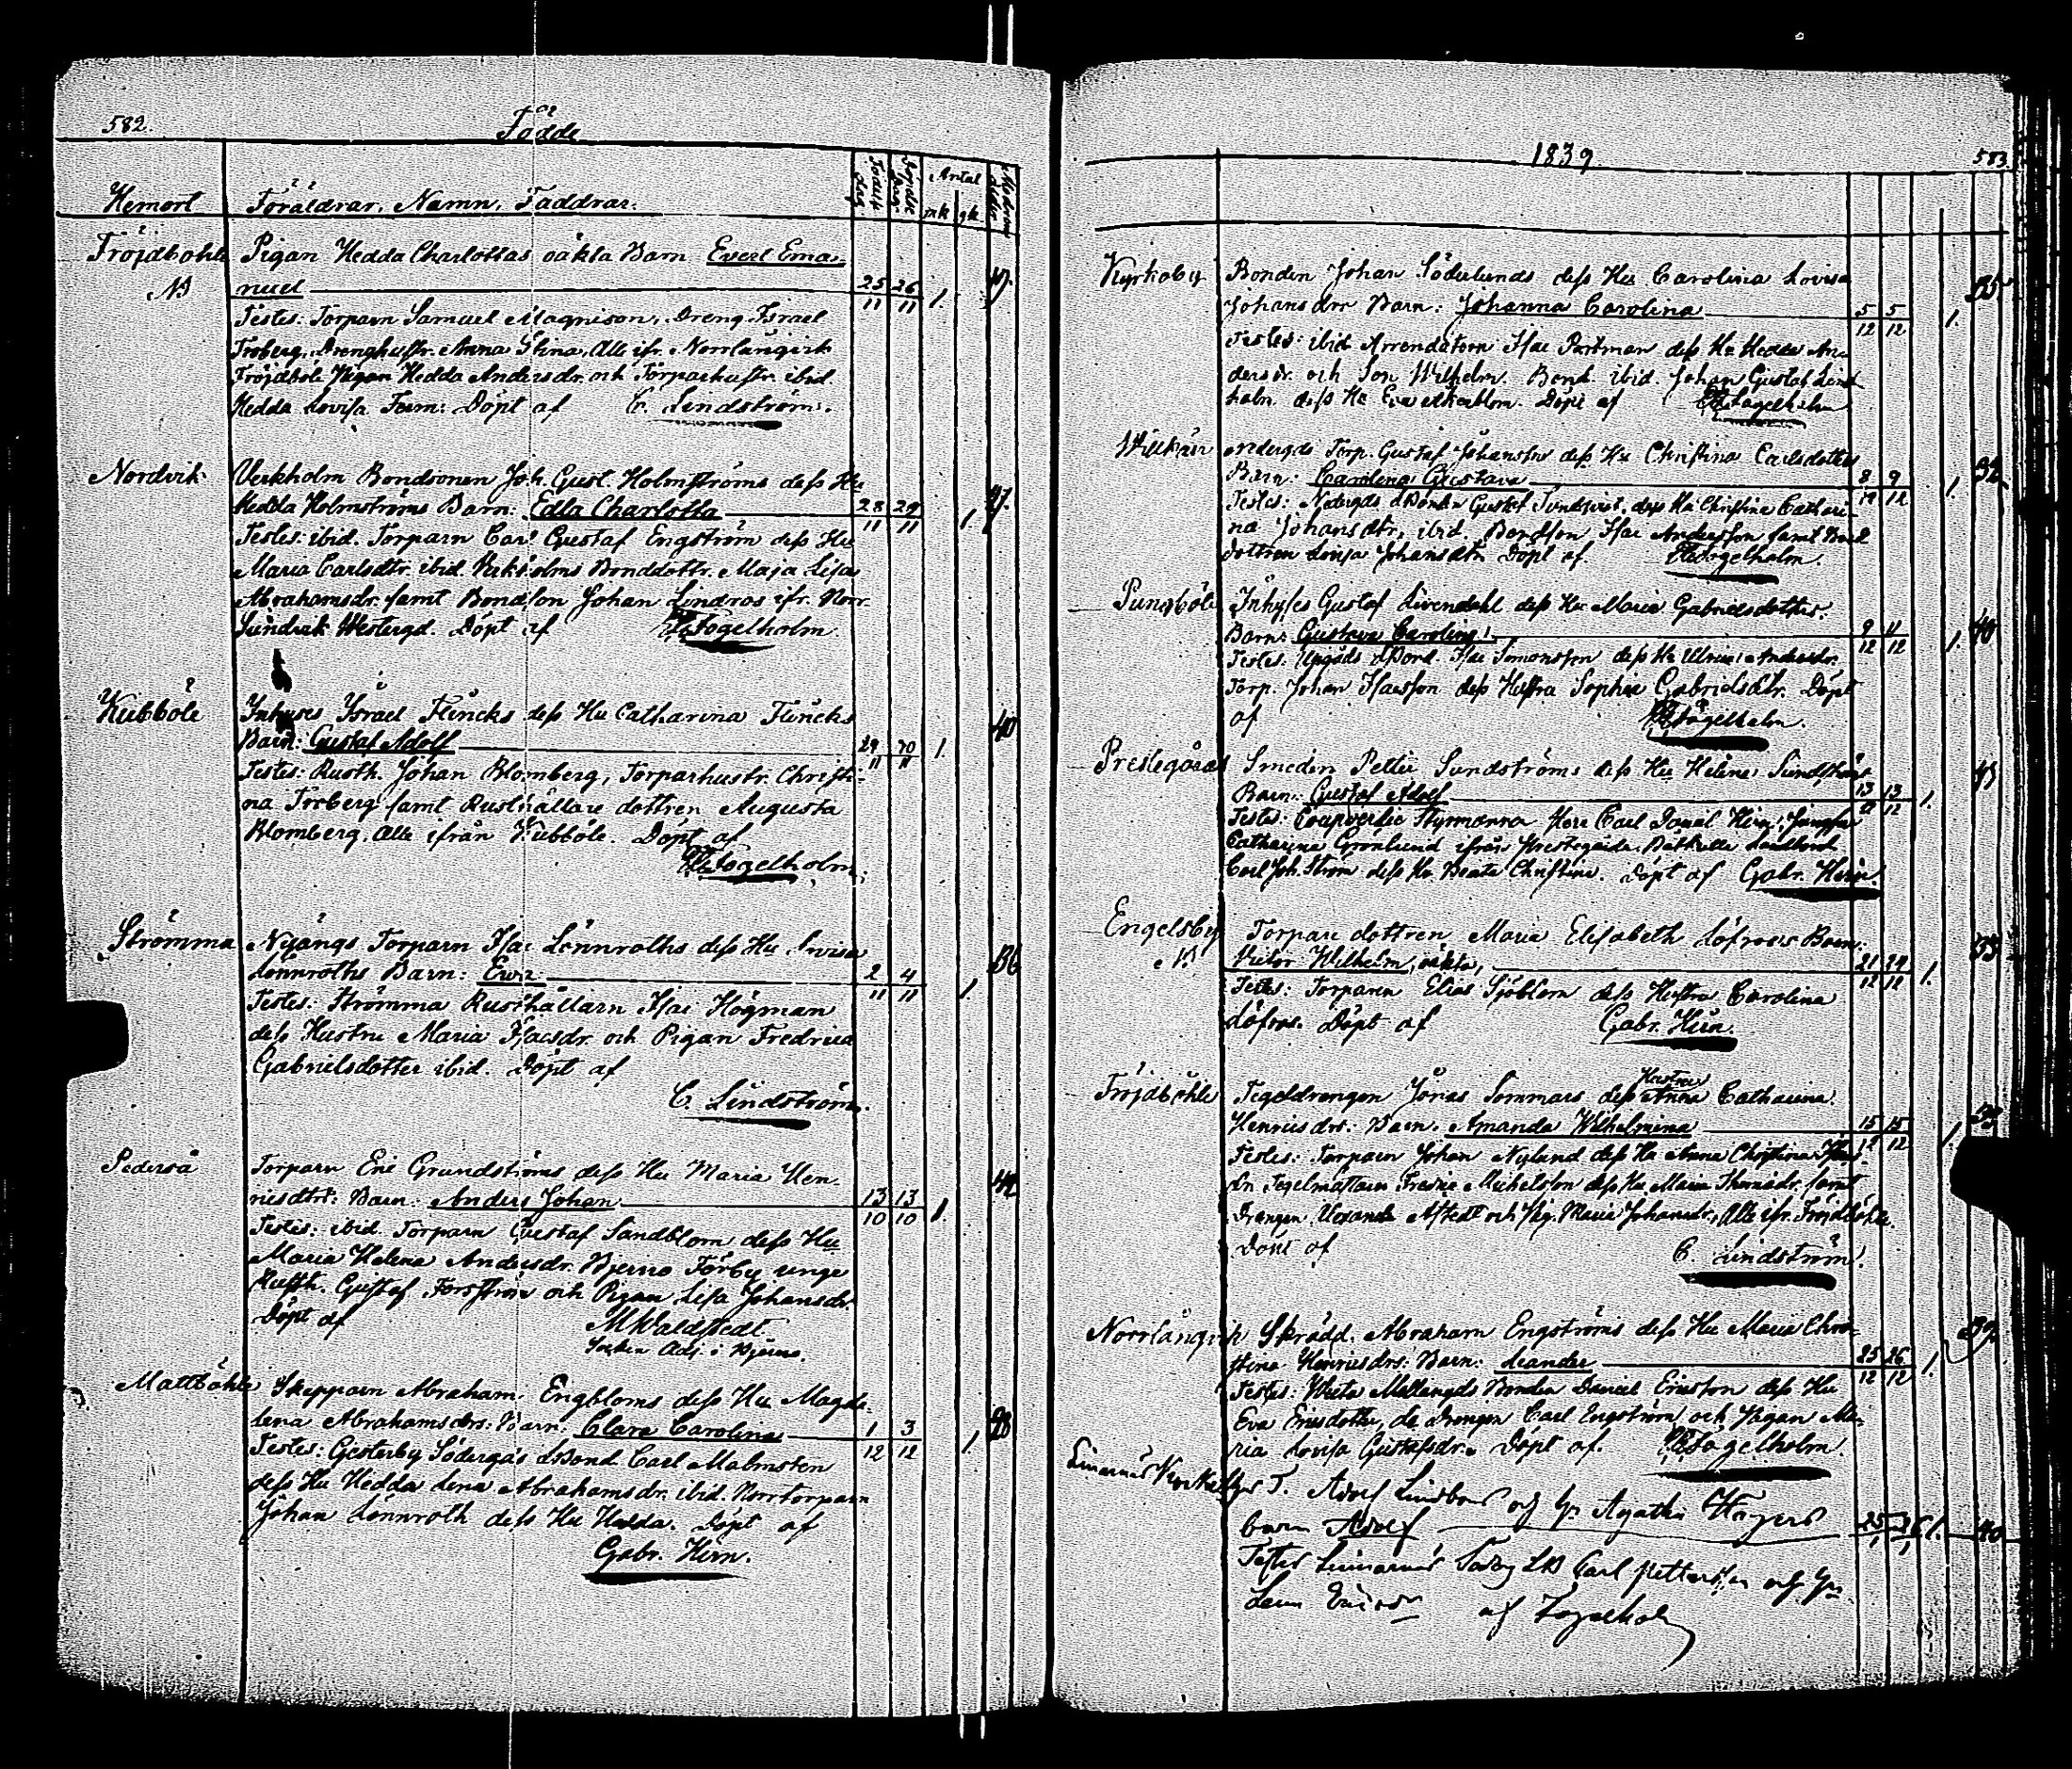 582.
Födde
Hemort
Föräldrar, Namn, Faddrar.
Födelse dag
Döpelse dag
Antal
mk
qk
Moderns ålder
Fröjdböhle
Pigan Hedda Charlottas oäkta Barn Evert Ema-
NB
nuel
25 26
11 11
1.
Testes: Torparn Samuel Magnison, Dreng Israel
Froberg, Drenghustr. Anna Stina, Alle ifr. Norrlångvik
Fröjdböle Pigan Hedda Andersdr. och Torparhustr. ibid.
Hedda Lovisa Döpt af C. Lindström.
Nordvik
Verkholm Bondsonen Joh. Gust. Holmströms dess Hu
Hedda Holmströms Barn: Edla Charlotta
28 29
11 11
1.
27.
Testes: ibid. Torparn Carl Gustaf Engström dess Hu
Maria Carlsdtr. ibid. Verkholms Bonddottr. Maja Lisa
Abrahamsdr. samt Bondson Johan Lindros ifr. Norr-
Sundvik Westergd. Döpt af Fogelholm.
Kubböle
Inhyses Israel Flincks dess Hu Catharina Flincks
Barn: Gustaf Adolf
29 30
11 11
1.
40
Testes: Rusth. Johan Blomberg, Torparhustr. Christi-
na Forberg samt Rusthållare dottren Augusta
Blomberg, Alle ifrån Kubböle. Döpt af
Fogelholm.
Strömma
Nyängs Torparn Isac Lönnroths dess Hu Lovisa
Lönnroths Barn: Ewa
2 4
11 11
1.
36
Testes: Strömma Rusthållarn Isac Högman
dess Hustru Maria Isacsdr. och Pigan Fredrica
Gabrielsdotter ibid. Döpt af
C. Lindström.
Pederså
Torparn Eric Grundströms dess Hu Maria Hen-
ricsdtrs: Barn: Anders Johan
13 13
10 10
1.
42
Testes: ibid. Torparn Gustaf Sandblom dess Hu
Maria Helena Andersdr. Bjerno Förby unge
Rusth. Gustaf Forsström och Pigan Lisa Johansdr.
Döpt af MWaldstedt
Socken Adj. i Bjerno.
Mattböhle
Skepparn Abraham Engbloms dess Hu Magda-
lena Abrahamsdrs: Barn: Clara Carolina
1 3
12 12
1.
28
Testes: Gesterby Södergårds Bond. Carl Malmsten
dess Hu Hedda Lena Abrahamsdr. ibid. Norrtorparn
Johan Lönnroth dess Hu Hedda. Döpt af
Gabr. Hirn.
1839.
583.
Kyrkoby
Bonden Johan Söderlunds dess Hu Carolina Lovisa
Johansdrs Barn: Johanna Carolina
5 5
12 12
1.
35
Testes: ibid Arrendatorn Isac Partman dess Hu Hedda An-
dersdr. och Son Wilhelm. Bond. ibid. Johan Gustaf Lind-
holm dess Hu Eva Döpt af Fogelholm
Willkärr
Nedergds Torp. Gustaf Johansson dess Hu Christina Carlsdotters
Barn: Carolina Gustava
8 9
12 12
1.
32
Testes: Nedergds Bonden Gustaf Sundqvist, dess Hu Christina Cathari-
na Johansdtr, ibid. Bondson Isac Andersson samt Bond-
dottren Lovisa Johansdtr. Döpt af Fogelholm.
Pungböle
Inhyses Gustaf Livendahl dess Hu Maria Gabrielsdotters.
Barn: Gustava Carolina
9 11
12 12
1.
40
Testes: Uppgårds Bond. Isac Simonsson dess Hu Ulrica Andersdr.
Torp. Johan Isacsson dess Hustru Sophia Gabrielsdtr. Döpt
af Fogelholm.
Prestegårds
Smeden Petter Sundströms dess Hu Helena Sundströms
Barn: Gustaf Adolf
13 13
12 12
1.
43
Testes: Coopverdie Styrmannen Herr Carl Daniel Hirn, Jungfru
Catharina Grönlund ifrån Prestegården
Carl Joh. Ström dess Hu. Beata Christina. Döpt af Gabr. Hirn.
Engelsby
Torpare dottren Maria Elisabeth Löfroos Barn:
NB
Victor Wilhelm, oäkta,
21 24
12 12
1.
33
Testes: Torparen Elias Sjöblom dess Hustru Carolina
Löfroos. Döpt af Gabr. Hirn.
Fröjdböhle
Tegeldrengen Jonas Sommars dess Hustru Anna Catharina
Henricsdrs: Barn. Amanda Wilhelmina
15 15
12 12
1.
Testes: Torparn Johan Nylund dess Hu Anna Christina
Fredric Michelsson dess Hu Maria samt
Drengen Alexander Afstedt och Pig. Maria Johansdr., Alle ifr. Fröjdböhle.
Döpt af C. Lindström.
Norrlångvik
Skrädd. Abraham Engströms dess Hu Maria Chri-
stina Henricsdrs: Barn: Leander
25 26
12 12
1.
39.
Testes: Mellangds Bonden Daniel Ericsson dess Hu
Eva Ericsdotter, Drengen Carl Engström och Pigan Ma-
ria Lovisa Gustafsdr. Döpt af Fogelholm
T. Adolf Lindbom och Agatha
barn Adolf
25 26
1 1
1.
40
Testes Carl Petterson och
af Fogelholm